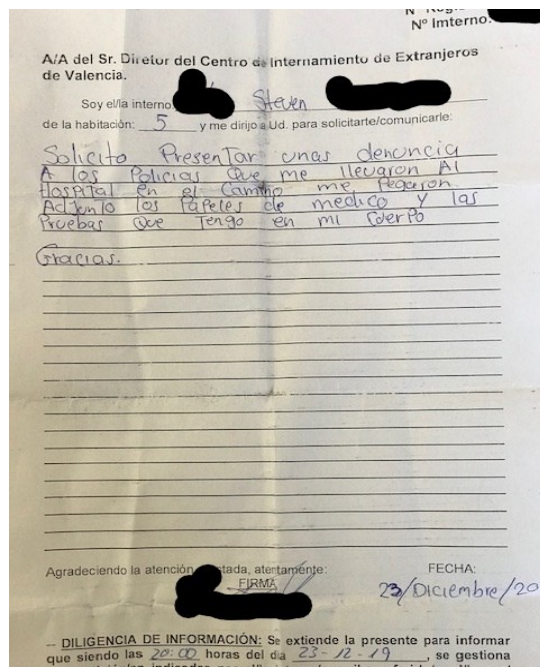 Nº
Nº Imterno:
A/A del Sr. Diretur del Centro de Internamiento de Extranjeros
de Valencia.
Soy el/la interno Steven
de la habitación: 5 y me dirijo a Ud. para solicitarte/comunicarle:
Solicito Presentar unas denuncia
A los Policias Que me llevaron Al
Hospital en el Camino me Pegaron
Adjunto los Papeles de medico y las
Pruebas Que Tengo en mi Cuerpo
Gracias.
Agradeciendo la atención tada, atentamente: FECHA:
FIRMA
23/Diciembre/20
-- DILIGENCIA DE INFORMACIÓN: Se extiende la presente para informar
que siendo las 20:00 horas del dia 23-12-19, se gestiona